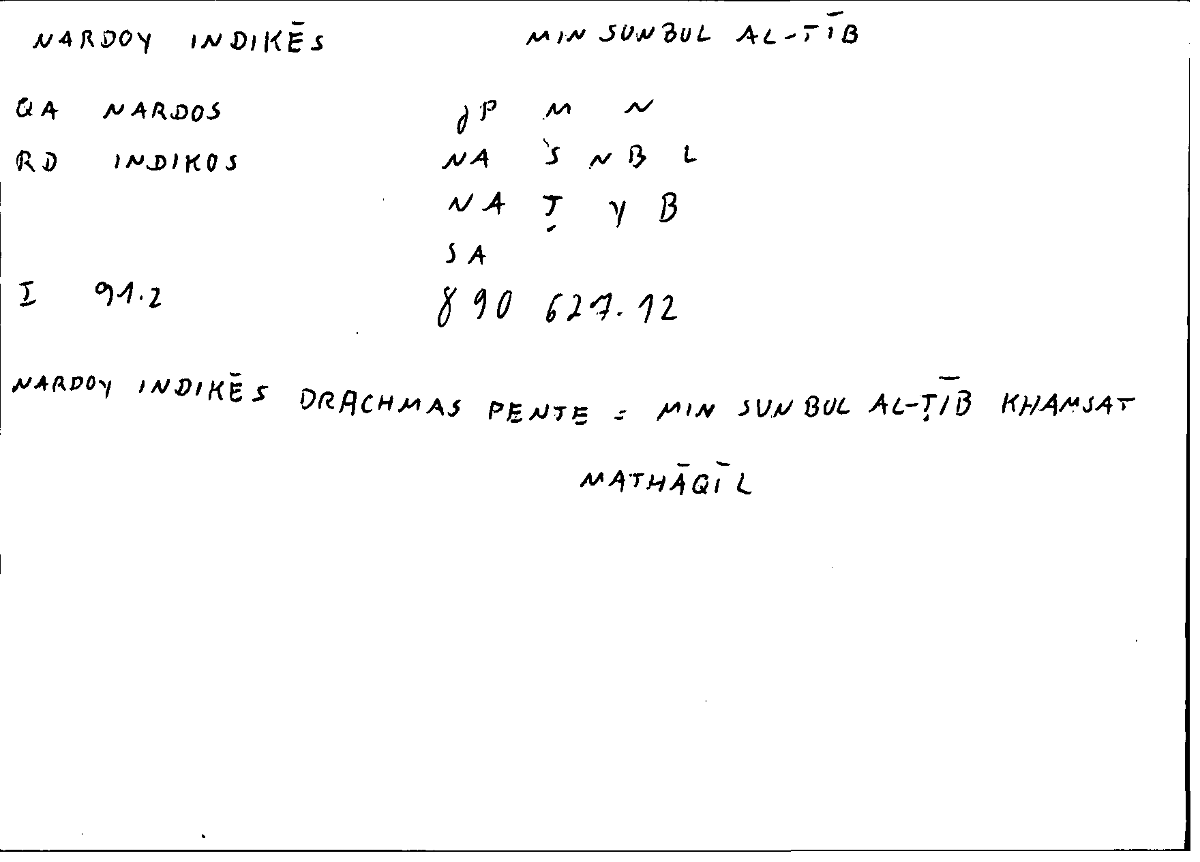 NARDOY INDIKĒS MIN SUNBUL AL-TĪB
QA NARDOS gP M N
RD INDIKOS NA S N B L
NA Ṭ Y B
SA
I 91.2 890 627.12
NARDOY INDIKĒS DRACHMAS PENTE = MIN SUNBUL AL-ṬĪB KHAMSAT
MATHĀQĪL